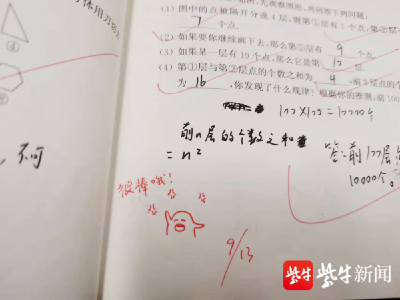 体用刀切
不可
图中的点被隔开分成4层,则第①层有1个点,
7 个点.
(2) 如果要你继续画下去,那么第⑤层有 9 个点
(3) 如果某一层有19个点,那么它是第 10 层
(4) 第①层与第②层点的个数之和为 4
为 16 ,你发现了什么规律?根据你的推测,前100
100×100=10000个
前n层的个数之和
= n²
答:前100层
10000个。
很棒哦!
哈 哈
哈
9/13
紫牛 紫牛新闻